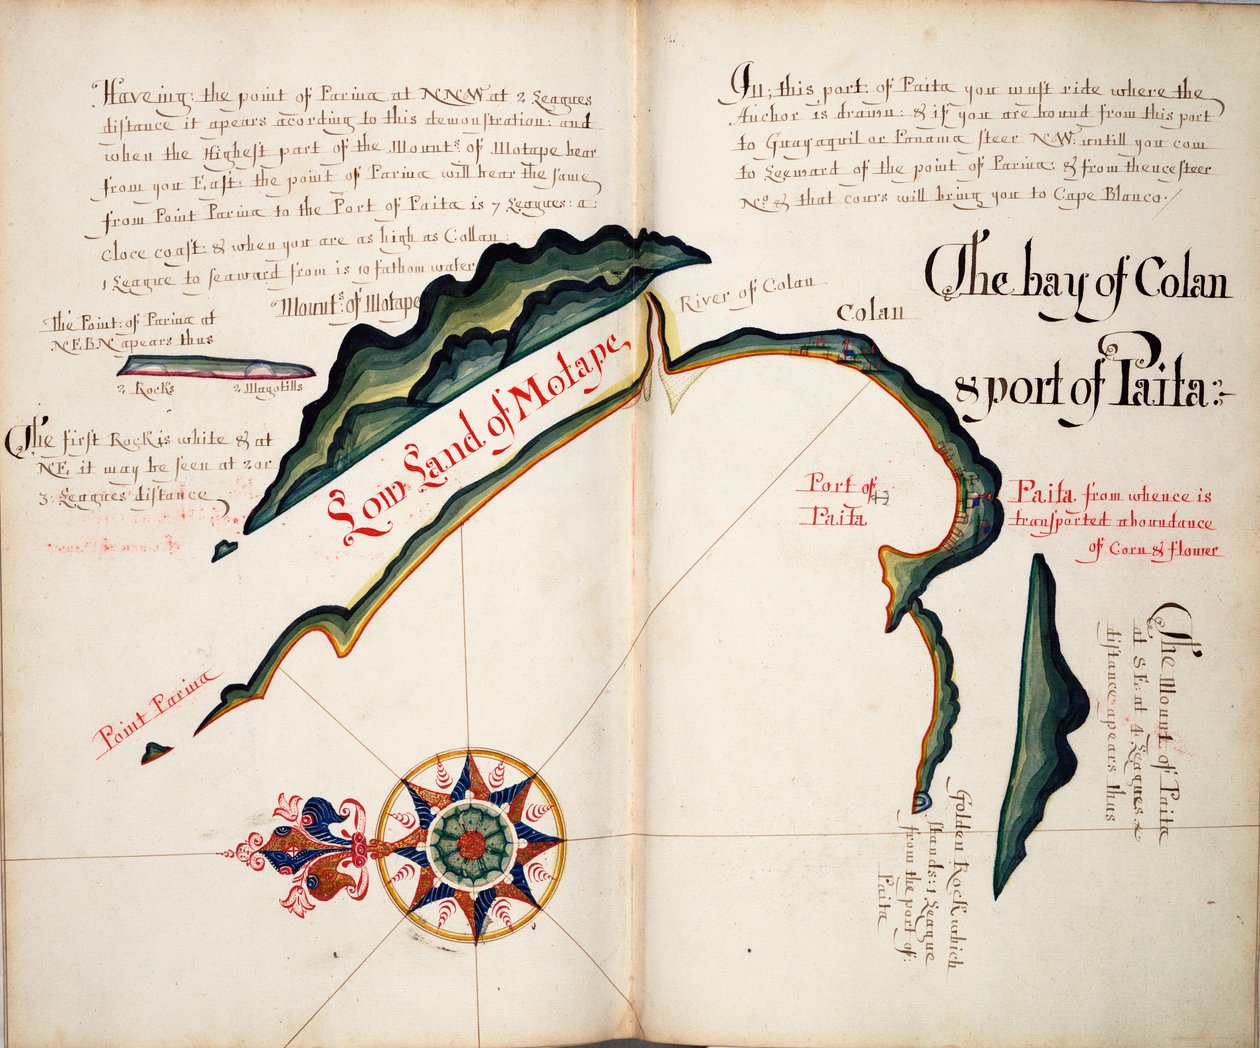 Haveing: the point of Parina at NNW at 2 Leagues
distance it apears acording to this demonstration: and
when the Highest part of the Mounts of Motape bear
from you East: the point of Parina will bear the same
from Point Parina to the Port of Paita is 7 Leagues: a:
cloce coast: & when you are as high as Collan:
1 League to seaward from is 10 fathom water
Mounts: of Motape
The Point: of Parina at
N.E.B.N apears thus
2 Rocks
2 Magotills
The first Rock is white & at
NE, it may be seen at 2 or
3: Leagues distance
Low Land of Motape
Point Parina
In; this port: of Paita you must ride where the
Anchor is drawn: & if you are bound from this port
to Guayaquil or Panama steer N.W: untill you com
to Leeward of the point of Parina: & from thence steer
No: & that cours will bring you to Cape Blanco:/
River of Colan
Colan
The bay of Colan
& port of Paita:~
Port of
Paita
Paita. from whence is
transported aboundance
of Corn & flower
The Mount: of Paita
at S.E: at 4 Leagues
distance apears thus
Golden Rock which
stands: 1 League
from the port of:
Paita